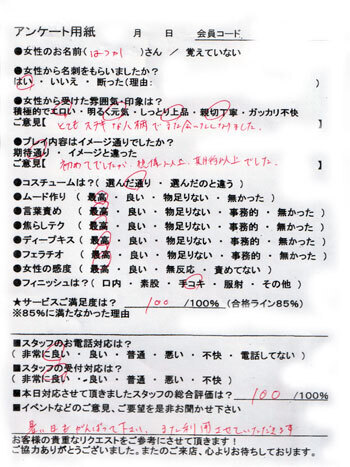 アンケート用紙　　月　　日　会員コード
●女性のお名前(はつか)さん ／ 覚えていない
●女性から名刺をもらいましたか？
はい ・ いいえ ・ 断った(理由:　　　　)
●女性から受けた雰囲気・印象は？
積極的でエロい・明るく元気・しっとり上品・親切丁寧・ガッカリ不快
ご意見【 とても ステキな人柄でまた会いたくなりました。 】
●プレイ内容はイメージ通りでしたか？
期待通り ・ イメージと違った
ご意見【 初めてでしたが、想像以上、期待以上でした。 】
●コスチュームは？( 選んだ通り ・ 選んだのと違う )
●ムード作り ( 最高 ・ 良い ・ 物足りない ・ 無かった )
●言葉責め ( 最高 ・ 良い ・ 物足りない ・ 事務的 ・ 無かった )
●焦らしテク ( 最高 ・ 良い ・ 物足りない ・ 事務的 ・ 無かった )
●ディープキス ( 最高 ・ 良い ・ 物足りない ・ 事務的 ・ 無かった )
●フェラチオ ( 最高 ・ 良い ・ 物足りない ・ 事務的 ・ 無かった )
●女性の感度 ( 最高 ・ 良い ・ 無反応 ・ 責めてない )
●フィニッシュは？( 口内 ・ 素股 ・ 手コキ ・ 服射 ・ その他 )
★サービスご満足度は？ 100 /100% (合格ライン85%)
※85%に満たなかった理由
■スタッフのお電話対応は？
( 非常に良い ・ 良い ・ 普通 ・ 悪い ・ 不快 ・ 電話してない )
■スタッフの受付対応は？
( 非常に良い ・ 良い ・ 普通 ・ 悪い ・ 不快 )
■本日対応させて頂きましたスタッフの総合評価は？ 100 /100%
■イベントなどのご意見、ご要望を是非お聞かせ下さい
暑い日もがんばって下さい、また利用させていただきます
お客様の貴重なリクエストをご参考にさせて頂きます！
ご協力ありがとうございました。またのご来店、心よりお待ちしております。